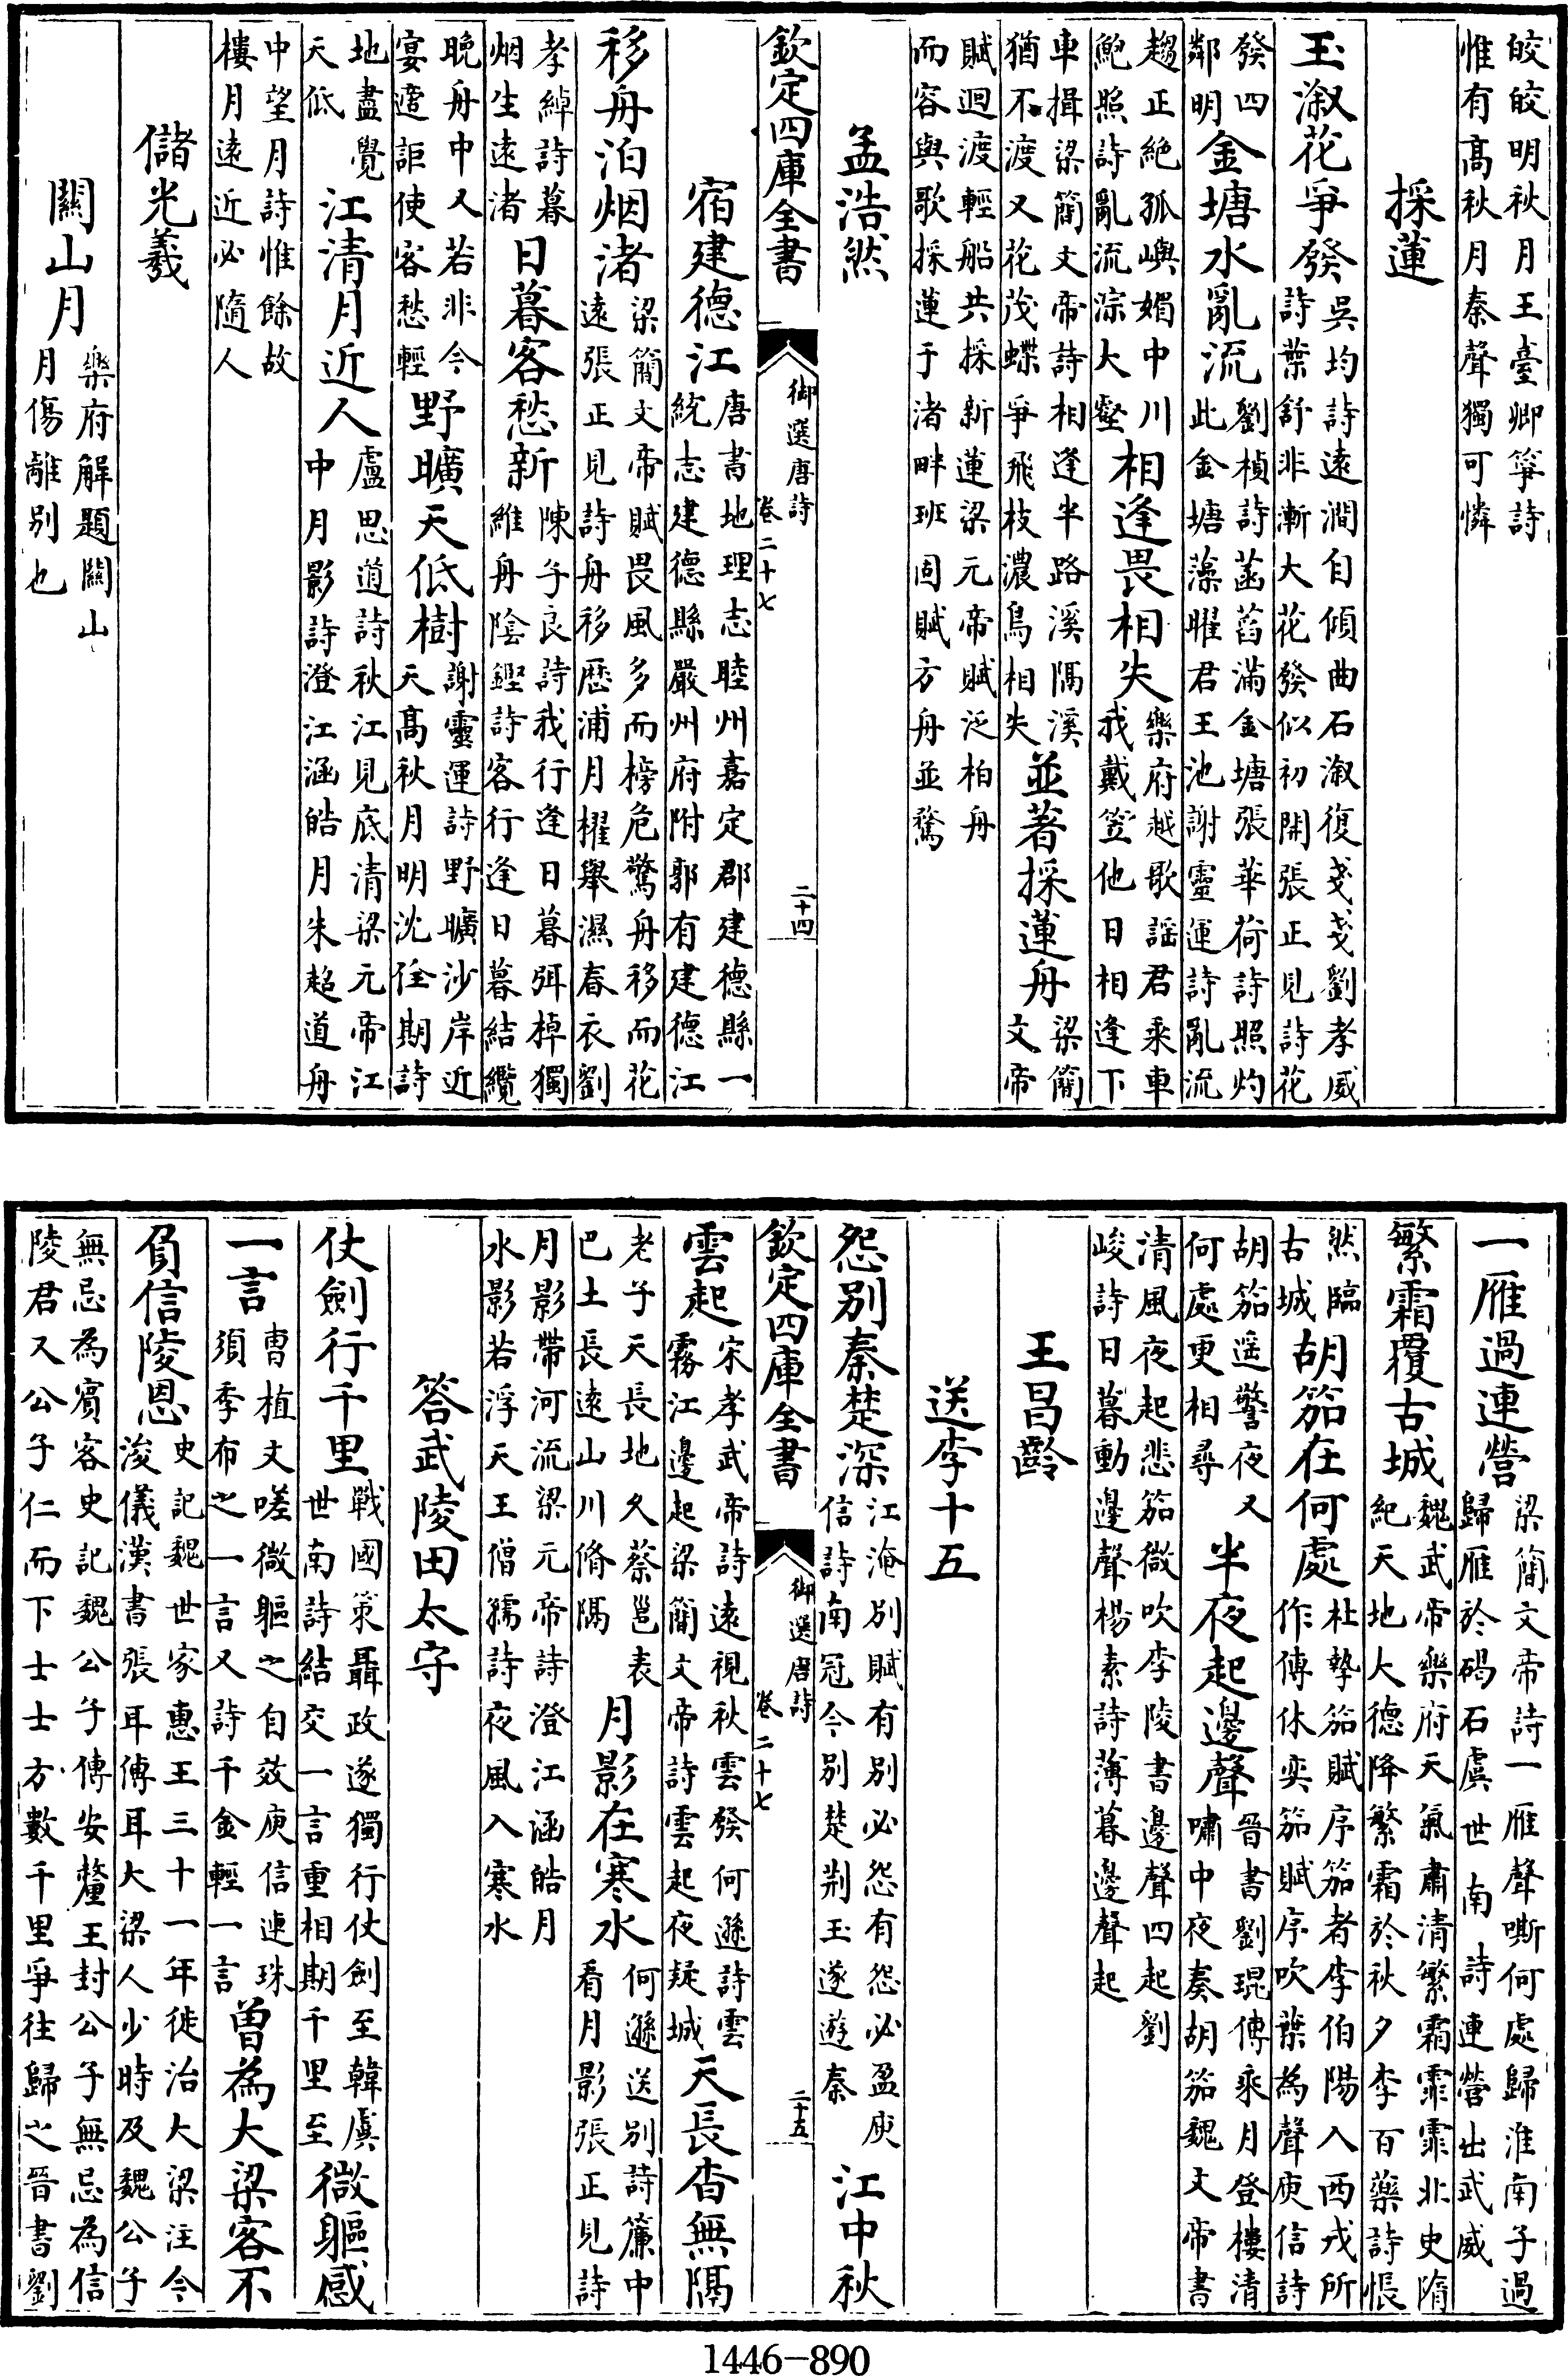 皎皎明秋月王臺卿箏詩
惟有高秋月秦聲獨可憐
採蓮
玉溆花爭發吳均詩遠澗自傾曲石溆復戔戔劉孝威詩葉舒非漸大花發似初開張正見詩花
發四鄰明金塘水亂流劉楨詩菡萏滿金塘張華荷詩照灼此金塘藻曜君王池謝靈運詩亂流
趨正絶孤嶼媚中川鮑照詩亂流灇大壑相逢畏相失樂府越歌謡君乘車我戴笠他日相逢下
車揖梁簡文帝詩相逢半路溪隔溪猶不渡又花茂蝶爭飛枝濃鳥相失並著採蓮舟梁簡文帝
賦迴渡輕船共採新蓮梁元帝賦泛柏舟而容與歌採蓮于渚畔班固賦方舟並騖
孟浩然
欽定四庫全書 御選唐詩 卷二十七 二十四
宿建德江唐書地理志睦州嘉定郡建德縣一統志建德縣嚴州府附郭有建德江
移舟泊烟渚梁簡文帝賦畏風多而榜危驚舟移而花遠張正見詩舟移歷浦月櫂舉濕春衣劉
孝綽詩暮烟生遠渚日暮客愁新陳子良詩我行逢日暮弭棹獨維舟陰鏗詩客行逢日暮結纜
晚舟中又若非今宴適詎使客愁輕野曠天低樹謝靈運詩野曠沙岸近天高秋月明沈佺期詩
地盡覺天低江清月近人盧思道詩秋江見底清梁元帝江中月影詩澄江涵皓月朱超道舟
中望月詩惟餘故樓月遠近必隨人
儲光羲
關山月樂府解題關山月傷離別也
一雁過連營梁簡文帝詩一雁聲嘶何處歸淮南子過歸雁於碣石虞世南詩連營出武威
繁霜覆古城魏武帝樂府天氣肅清繁霜霏霏北史隋紀天地大德降繁霜於秋夕李百藥詩悵
然臨古城胡笳在何處杜摯笳賦序笳者李伯陽入西戎所作傅休奕笳賦序吹葉為聲庾信詩
胡笳遥警夜又何處更相尋半夜起邊聲晉書劉琨傳乘月登樓清嘯中夜奏胡笳魏文帝書
清風夜起悲笳微吹李陵書邊聲四起劉峻詩日暮動邊聲楊素詩薄暮邊聲起
王昌齡
送李十五
怨別秦楚深江淹別賦有別必怨有怨必盈庾信詩南冠今別楚荆玉遂遊秦江中秋
欽定四庫全書 御選唐詩 卷二十七 二十五
雲起宋孝武帝詩遠視秋雲發何遜詩雲霧江邊起梁簡文帝詩雲起夜疑城天長杳無隔
老子天長地久蔡邕表巴土長遠山川脩隔月影在寒水何遜送別詩簾中看月影張正見詩
月影帶河流梁元帝詩澄江涵皓月水影若浮天王僧孺詩夜風入寒水
答武陵田太守
仗劍行千里戰國策聶政遂獨行仗劍至韓虞世南詩結交一言重相期千里至微軀感
一言曹植文嗟微軀之自效庾信連珠須季布之一言又詩千金輕一言曾為大梁客不
負信陵恩史記魏世家惠王三十一年徙治大梁注今浚儀漢書張耳傳耳大梁人少時及魏公子
無忌為賓客史記魏公子傳安釐王封公子無忌為信陵君又公子仁而下士士方數千里爭往歸之晉書劉
1446-890